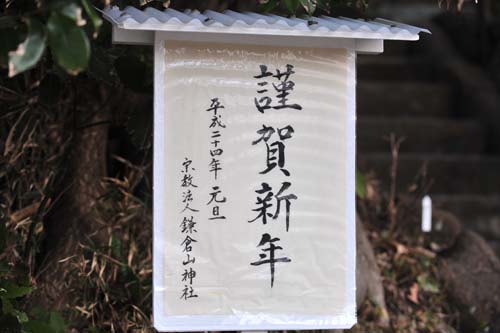 謹賀新年
平成二十四年 元旦
宗教法人鎌倉山神社